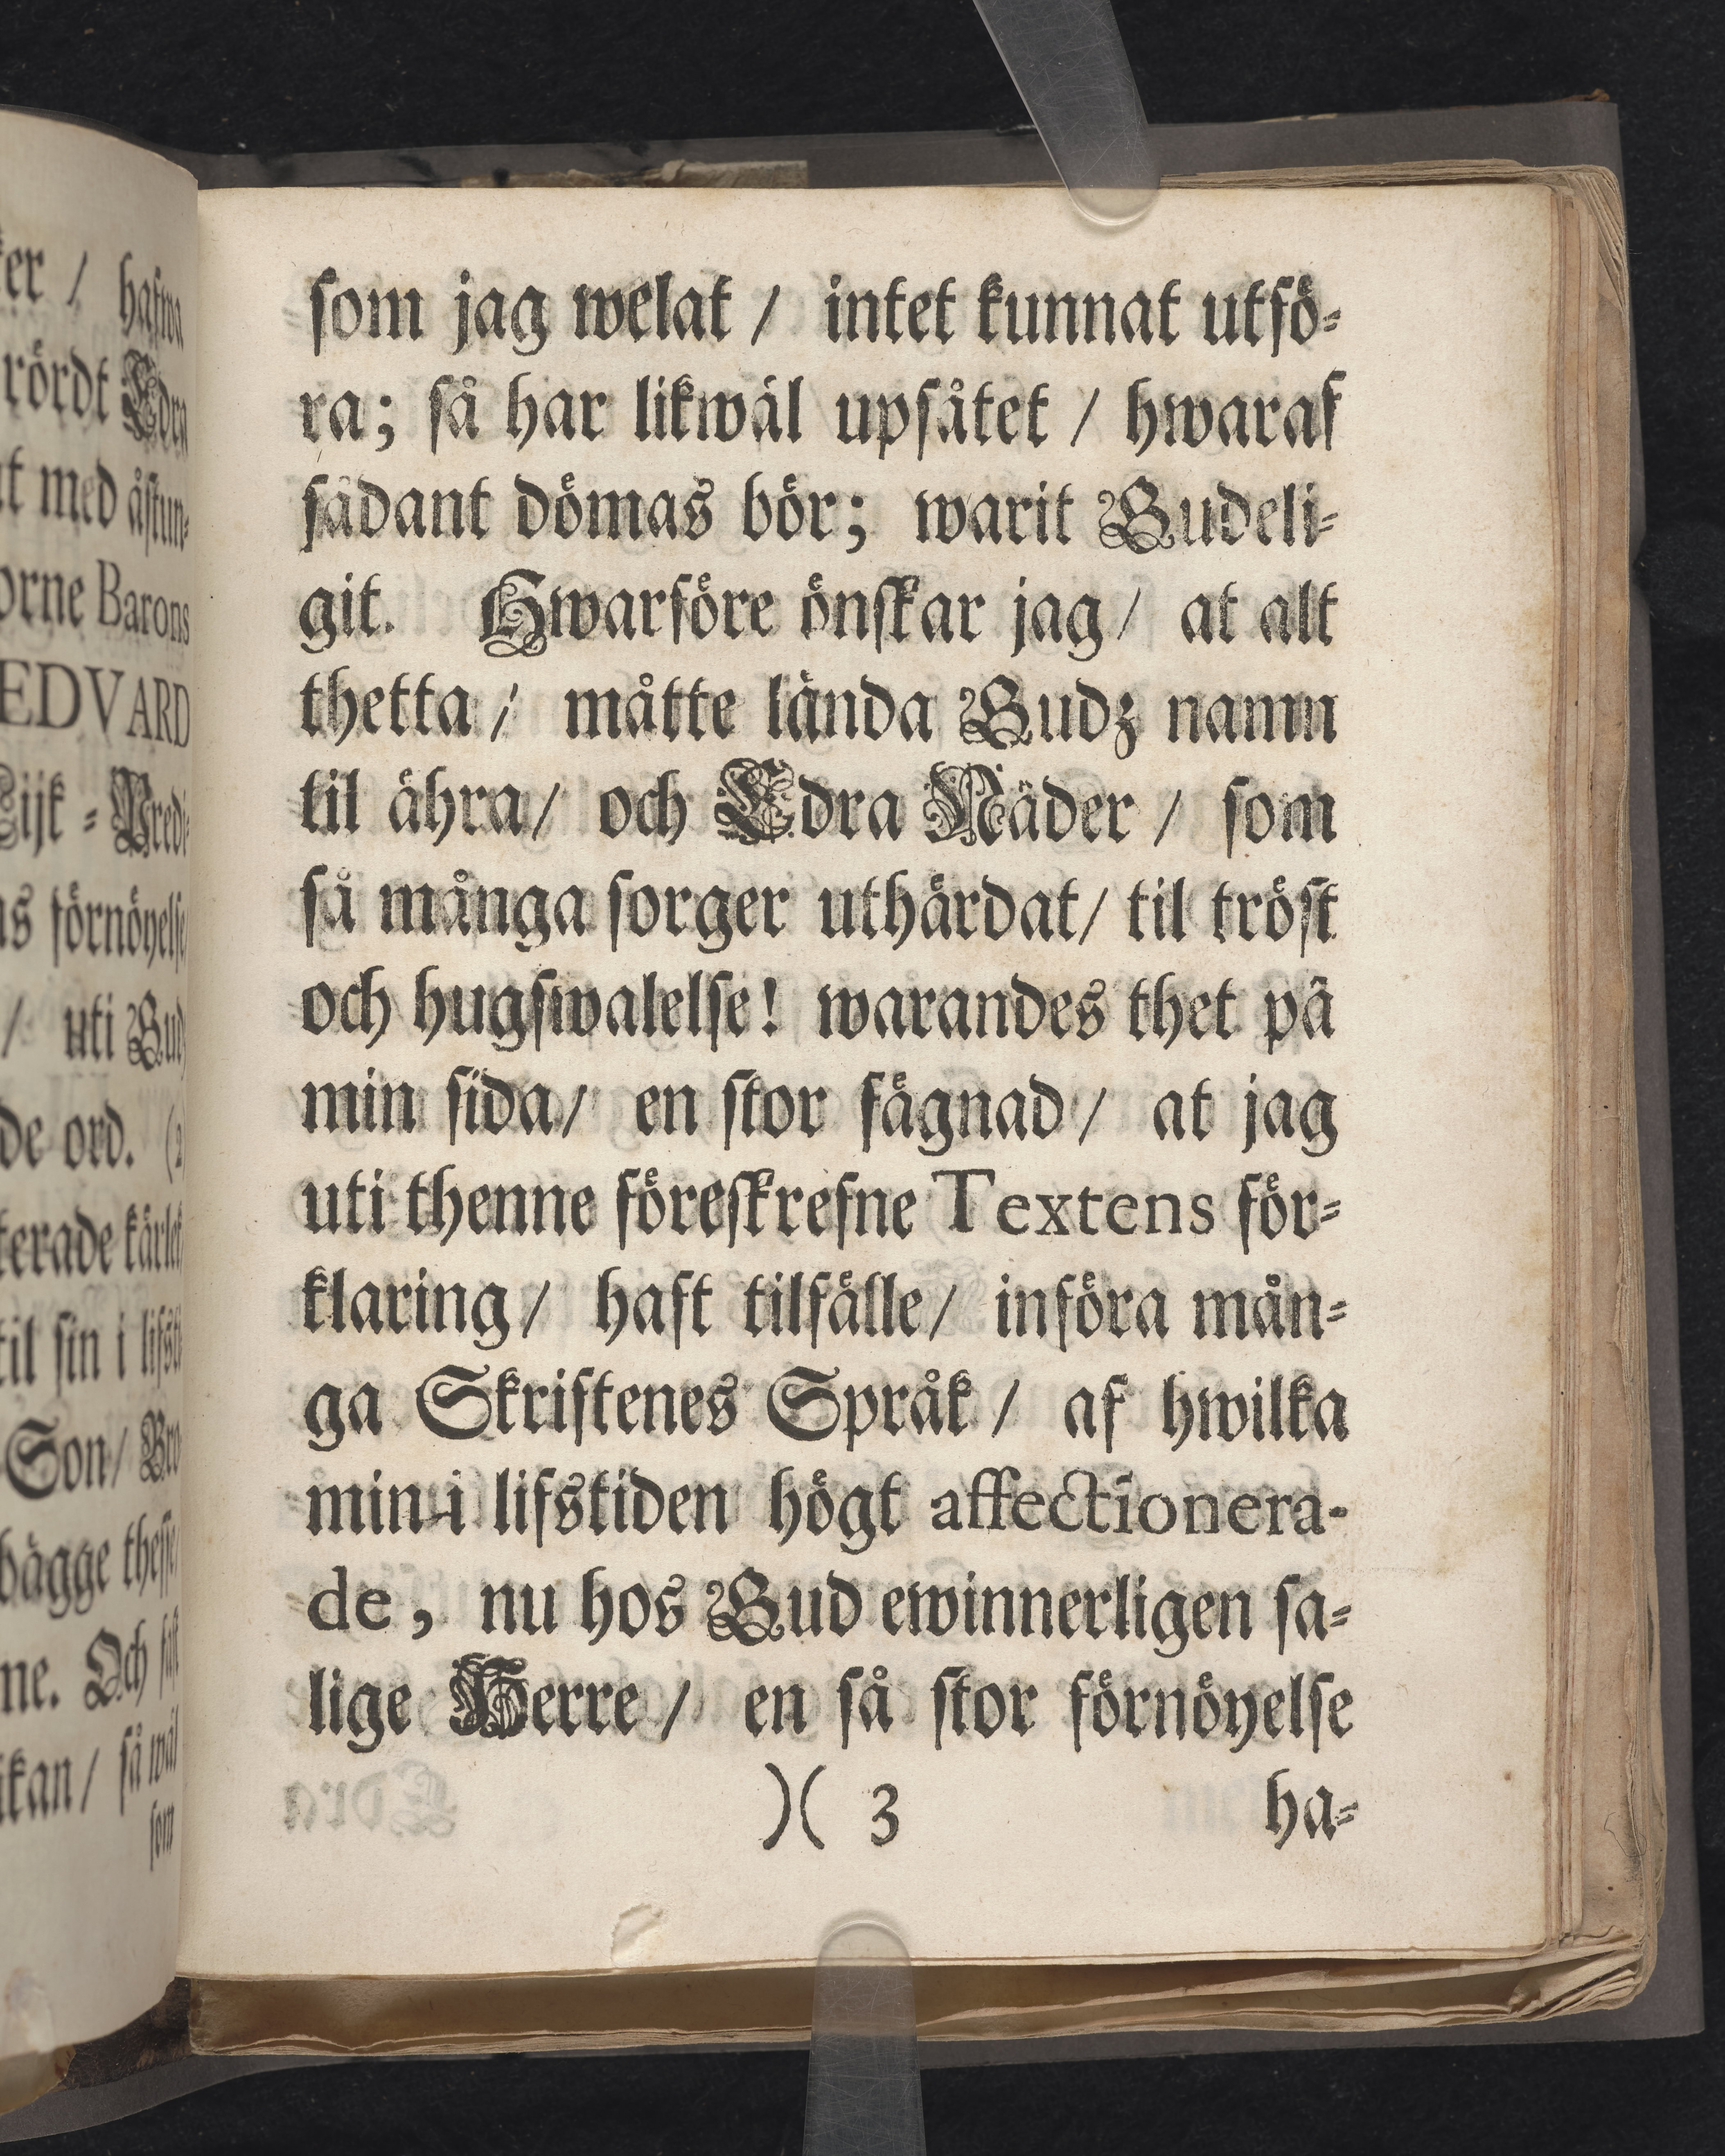 er / hafwa
rördt Edra
t med åstun-
orne Barons
EDVARD
Lijk - Predi-
as förnöyelse
/ uti Gud
de ord. (2)
terade kärlek
til sin i lifsti-
Son/ Bro
bägge thesse
ne. Och
ikan/ så wäl
som
som jag welat / intet kunnat utfö-
ra; så har likwäl upsåtet / hwaraf
sådant dömas bör; warit Gudeli-
git. Hwarföre önskar jag/ at alt
thetta / måtte lända Gudz namn
til ähra/ och Edra Nåder / som
så många sorger uthärdat/ til tröst
och hugswalelse! warandes thet på
min sida/ en stor fägnad / at jag
uti thenne föreskrefne Textens för-
klaring/ haft tilfälle/ införa mån-
ga Skriftenes Språk / af hwilka
min i lifstiden högt affectionera-
de, nu hos Gud ewinnerligen sa-
lige Herre / en så stor förnöyelse
)( 3 ha-